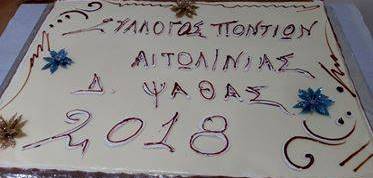 ΣΥΛΛΟΓΟΣ ΠΟΝΤΙΩΝ
ΑΙΤΩΛΙΝΙΑΣ
Δ. ΨΑΘΑΣ
2018